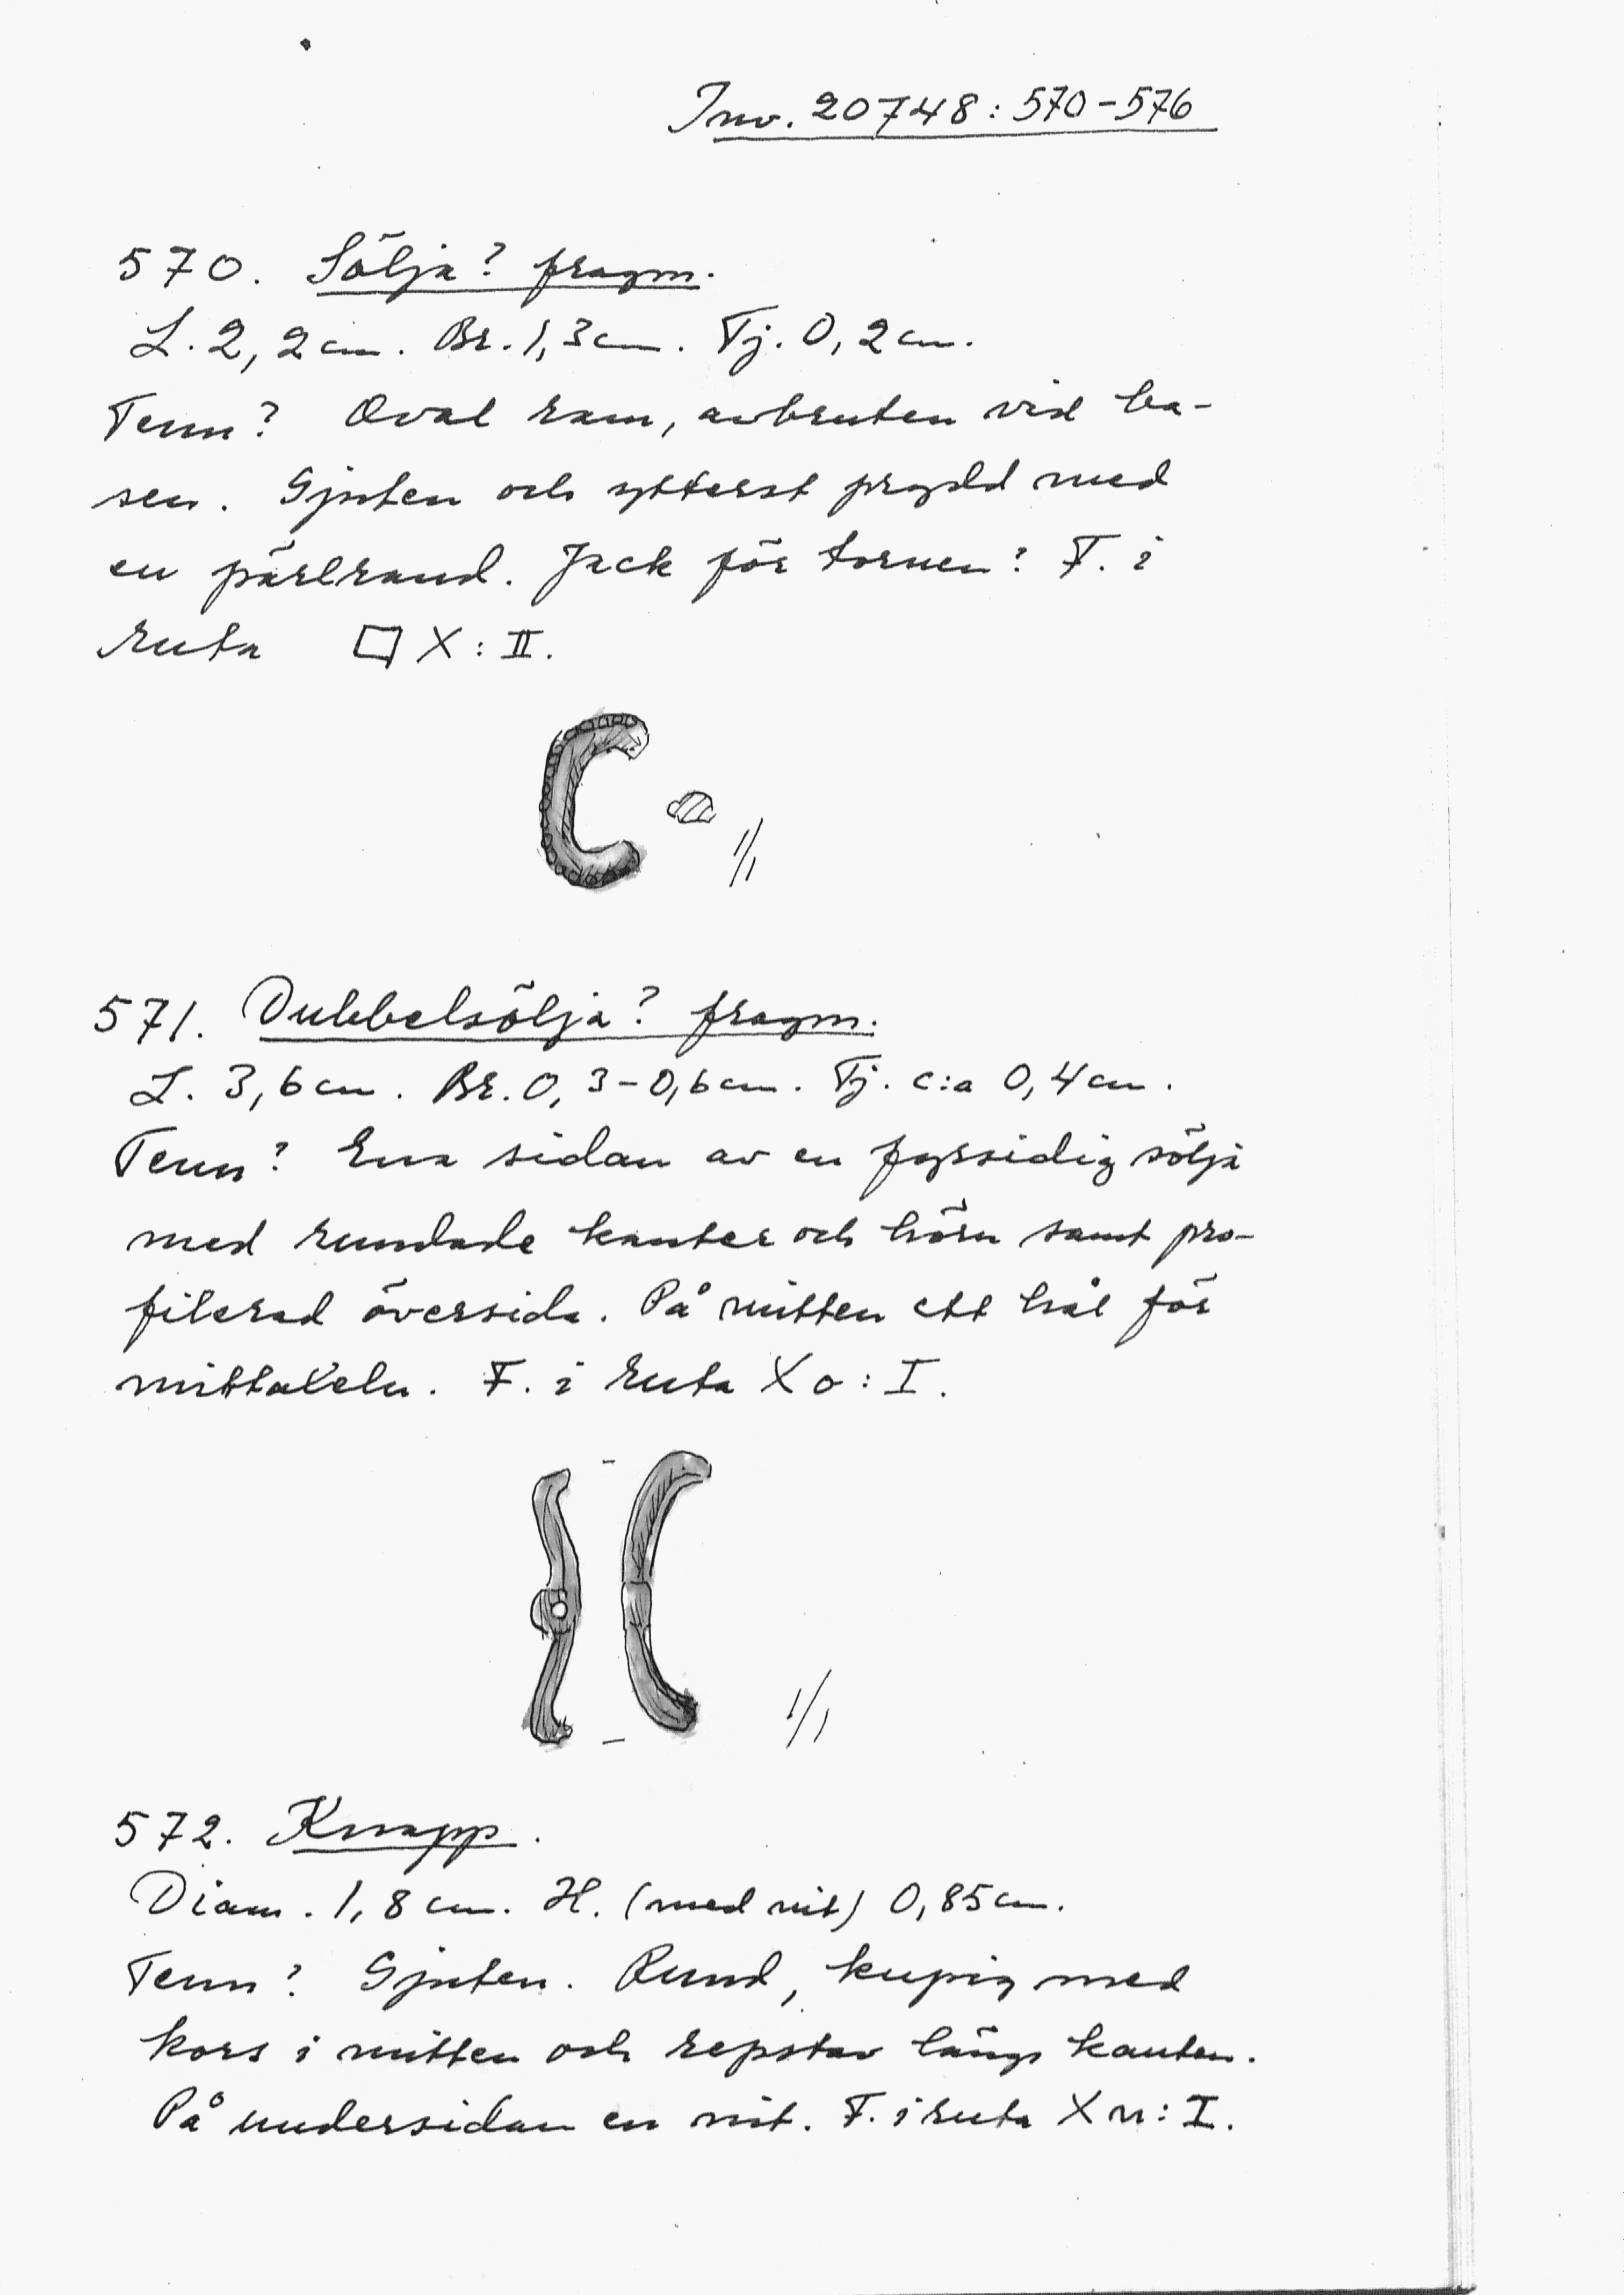 Inv. 20748:570-576
570. Sölja? fragm.
L. 2,2 cm. Br. 1,3 cm. Tj. 0,2 cm.
Tenn? Oval ram, avbruten vid ba-
sen. Gjuten och ytterst prydd med
en pärlrand. Jack för tornen? F. i
ruta □ X:II.
1/1
571. Dubbelsölja? fragm.
L. 3,6 cm. Br. 0,3-0,6 cm. Tj. c:a 0,4 cm.
Tenn? Ena sidan av en fyrsidig sölja
med rundade kanter och hörn samt pro-
filerad översida. På mitten ett hål för
mittaxeln. F. i ruta Xo:I.
1/1
572. Knapp.
Diam. 1,8 cm. H. (med nit) 0,85 cm.
Tenn? Gjuten. Rund, kupig med
kors i mitten och repstav längs kanten.
På undersidan en nit. F. i ruta Xn:I.